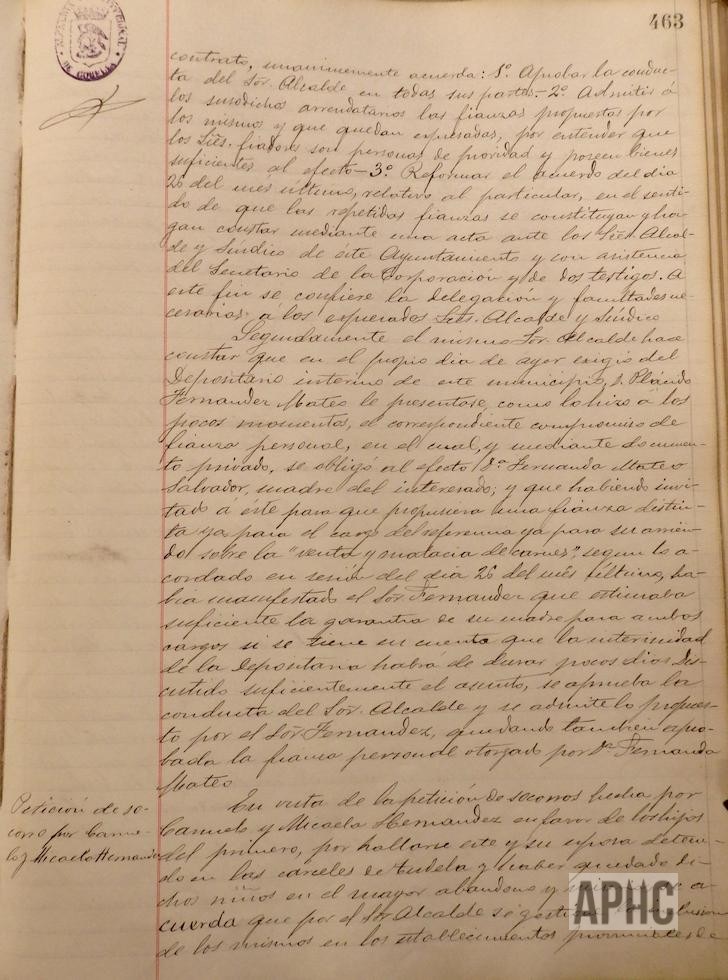 463
AYUNTAMIENTO
DE CORELLA
contrato, unanimemente acuerda: 1º Aprobar la conduc-
ta del Sor. Alcalde en todas sus partes.- 2º Admitir á
los susodichos arrendatarios las fianzas propuestas por
los mismos y que quedan expresadas, por entender que
los Sres. fiadores son personas de probidad y poseen bienes
suficientes al efecto - 3º Reformar el acuerdo del dia
26 del mes último, relativo al particular, en el senti-
do de que las repetidas fianzas se constituyan y ha-
gan constar mediante una acta ante los Sres. Alcal-
de y Síndico de este Ayuntamiento y con asistencia
del Secretario de la Corporación y de dos testigos. A
este fin se confiere la delegación y facultades ne-
cesarias á los expresados Sres. Alcalde y Síndico
Seguidamente el mismo Sor. Alcalde hace
constar que en el propio dia de ayer exigió del
Depositario interino de este municipio, D. Plácido
Fernandez Mateo le presentase, como lo hizo á los
pocos momentos, el correspondiente compromiso de
fianza personal, en el cual, y mediante documen-
to privado, se obligó al efecto Dª Fernanda Mateo
Salvador, madre del interesado; y que habiendo invi-
tado á este para que propusiera una fianza distin-
ta ya para el cargo de referencia ya para su arrien-
do sobre la "venta y matacia de carnes", segun lo a-
cordado en sesión del dia 26 del mes último, ha-
bia manifestado el Sor. Fernandez que estimaba
suficiente la garantia de su madre para ambos
cargos si se tiene en cuenta que la interinidad
de la Depositaria habrá de durar pocos dias. Dis-
cutido suficientemente el asunto, se aprueba la
conducta del Sor. Alcalde y se admite lo propues-
to por el Sor. Fernandez, quedando tambien apro-
bada la fianza personal otorgada por Dª Fernanda
Mateo
Petición de so-
corro por Canu-
to y Micaela Hernandez
En vista de la petición de socorros hecha por
Canuto y Micaela Hernandez en favor de los hijos
del primero, por hallarse este y su esposa deteni-
do en las carceles de Tudela y haber quedado di-
chos niños en el mayor abandono y se a-
cuerda que por el Sor. Alcalde se gestione la inclusion
de los mismos en los establecimientos provinciales de
APHC